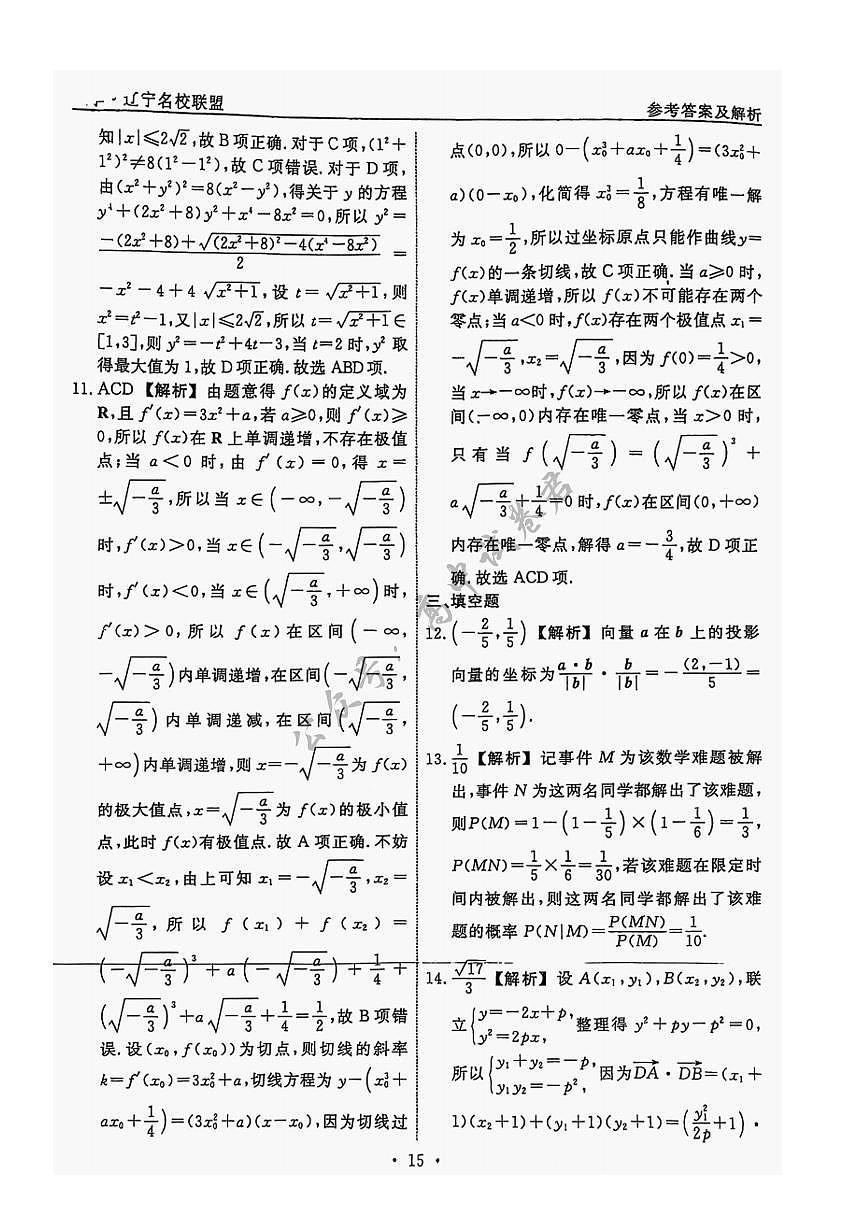 辽宁名校联盟
参考答案及解析
知|x|≤2√2,故B项正确.对于C项,(1²+
1²)²≠8(1²-1²),故C项错误.对于D项,
由(x²+y²)²=8(x²-y²),得关于y的方程
y⁴+(2x²+8)y²+x⁴-8x²=0,所以y²=
\frac{-(2x²+8)+\sqrt{(2x²+8)²-4(x⁴-8x²)}}{2} =
-x²-4+4\sqrt{x²+1},设t=\sqrt{x²+1},则
x²=t²-1,又|x|≤2√2,所以t=\sqrt{x²+1}∈
[1,3],则y²=-t²+4t-3,当t=2时,y²取
得最大值为1,故D项正确.故选ABD项.
11.ACD【解析】由题意得f(x)的定义域为
R,且f′(x)=3x²+a,若a≥0,则f′(x)≥
0,所以f(x)在R上单调递增,不存在极值
点;当a<0时,由f′(x)=0,得x=
±\sqrt{-\frac{a}{3}},所以当x∈(-∞,-\sqrt{-\frac{a}{3}})
时,f′(x)>0,当x∈(-\sqrt{-\frac{a}{3}},\sqrt{-\frac{a}{3}})
时,f′(x)<0,当x∈(\sqrt{-\frac{a}{3}},+∞)时,
f′(x)>0,所以f(x)在区间(-∞,
-\sqrt{-\frac{a}{3}})内单调递增,在区间(-\sqrt{-\frac{a}{3}},
\sqrt{-\frac{a}{3}})内单调递减,在区间(\sqrt{-\frac{a}{3}},
+∞)内单调递增,则x=-\sqrt{-\frac{a}{3}}为f(x)
的极大值点,x=\sqrt{-\frac{a}{3}}为f(x)的极小值
点,此时f(x)有极值点.故A项正确.不妨
设x₁<x₂,由上可知x₁=-\sqrt{-\frac{a}{3}},x₂=
\sqrt{-\frac{a}{3}},所以f(x₁)+f(x₂)=
(-\sqrt{-\frac{a}{3}})³+a(-\sqrt{-\frac{a}{3}})+\frac{1}{4}+
(\sqrt{-\frac{a}{3}})³+a\sqrt{-\frac{a}{3}}+\frac{1}{4}=\frac{1}{2},故B项错
误.设(x₀,f(x₀))为切点,则切线的斜率
k=f′(x₀)=3x₀²+a,切线方程为y-(x₀³+
ax₀+\frac{1}{4})=(3x₀²+a)(x-x₀),因为切线过
点(0,0),所以0-(x₀³+ax₀+\frac{1}{4})=(3x₀²+
a)(0-x₀),化简得x₀³=\frac{1}{8},方程有唯一解
为x₀=\frac{1}{2},所以过坐标原点只能作曲线y=
f(x)的一条切线,故C项正确.当a≥0时,
f(x)单调递增,所以f(x)不可能存在两个
零点;当a<0时,f(x)存在两个极值点x₁=
-\sqrt{-\frac{a}{3}},x₂=\sqrt{-\frac{a}{3}},因为f(0)=\frac{1}{4}>0,
当x→-∞时,f(x)→-∞,所以f(x)在区
间(-∞,0)内存在唯一零点,当x>0时,
只有当f(\sqrt{-\frac{a}{3}})=(\sqrt{-\frac{a}{3}})³+
a\sqrt{-\frac{a}{3}}+\frac{1}{4}=0时,f(x)在区间(0,+∞)
内存在唯一零点,解得a=-\frac{3}{4},故D项正
确.故选ACD项.
三、填空题
12.(-\frac{2}{5},\frac{1}{5})【解析】向量a在b上的投影
向量的坐标为\frac{a·b}{|b|}·\frac{b}{|b|}=-\frac{(2,-1)}{5}=
(-\frac{2}{5},\frac{1}{5}).
13.\frac{1}{10}【解析】记事件M为该数学难题被解
出,事件N为这两名同学都解出了该难题,
则P(M)=1-(1-\frac{1}{5})×(1-\frac{1}{6})=\frac{1}{3},
P(MN)=\frac{1}{5}×\frac{1}{6}=\frac{1}{30},若该难题在限定时
间内被解出,则这两名同学都解出了该难
题的概率P(N|M)=\frac{P(MN)}{P(M)}=\frac{1}{10}.
14.\frac{\sqrt{17}}{3}【解析】设A(x₁,y₁),B(x₂,y₂),联
立{y=-2x+p,y²=2px,整理得y²+py-p²=0,
所以{y₁+y₂=-p,y₁y₂=-p²,因为\overrightarrow{DA}·\overrightarrow{DB}=(x₁+
1)(x₂+1)+(y₁+1)(y₂+1)=(\frac{y₁²}{2p}+1)·
·15·
公众号:高中试卷君